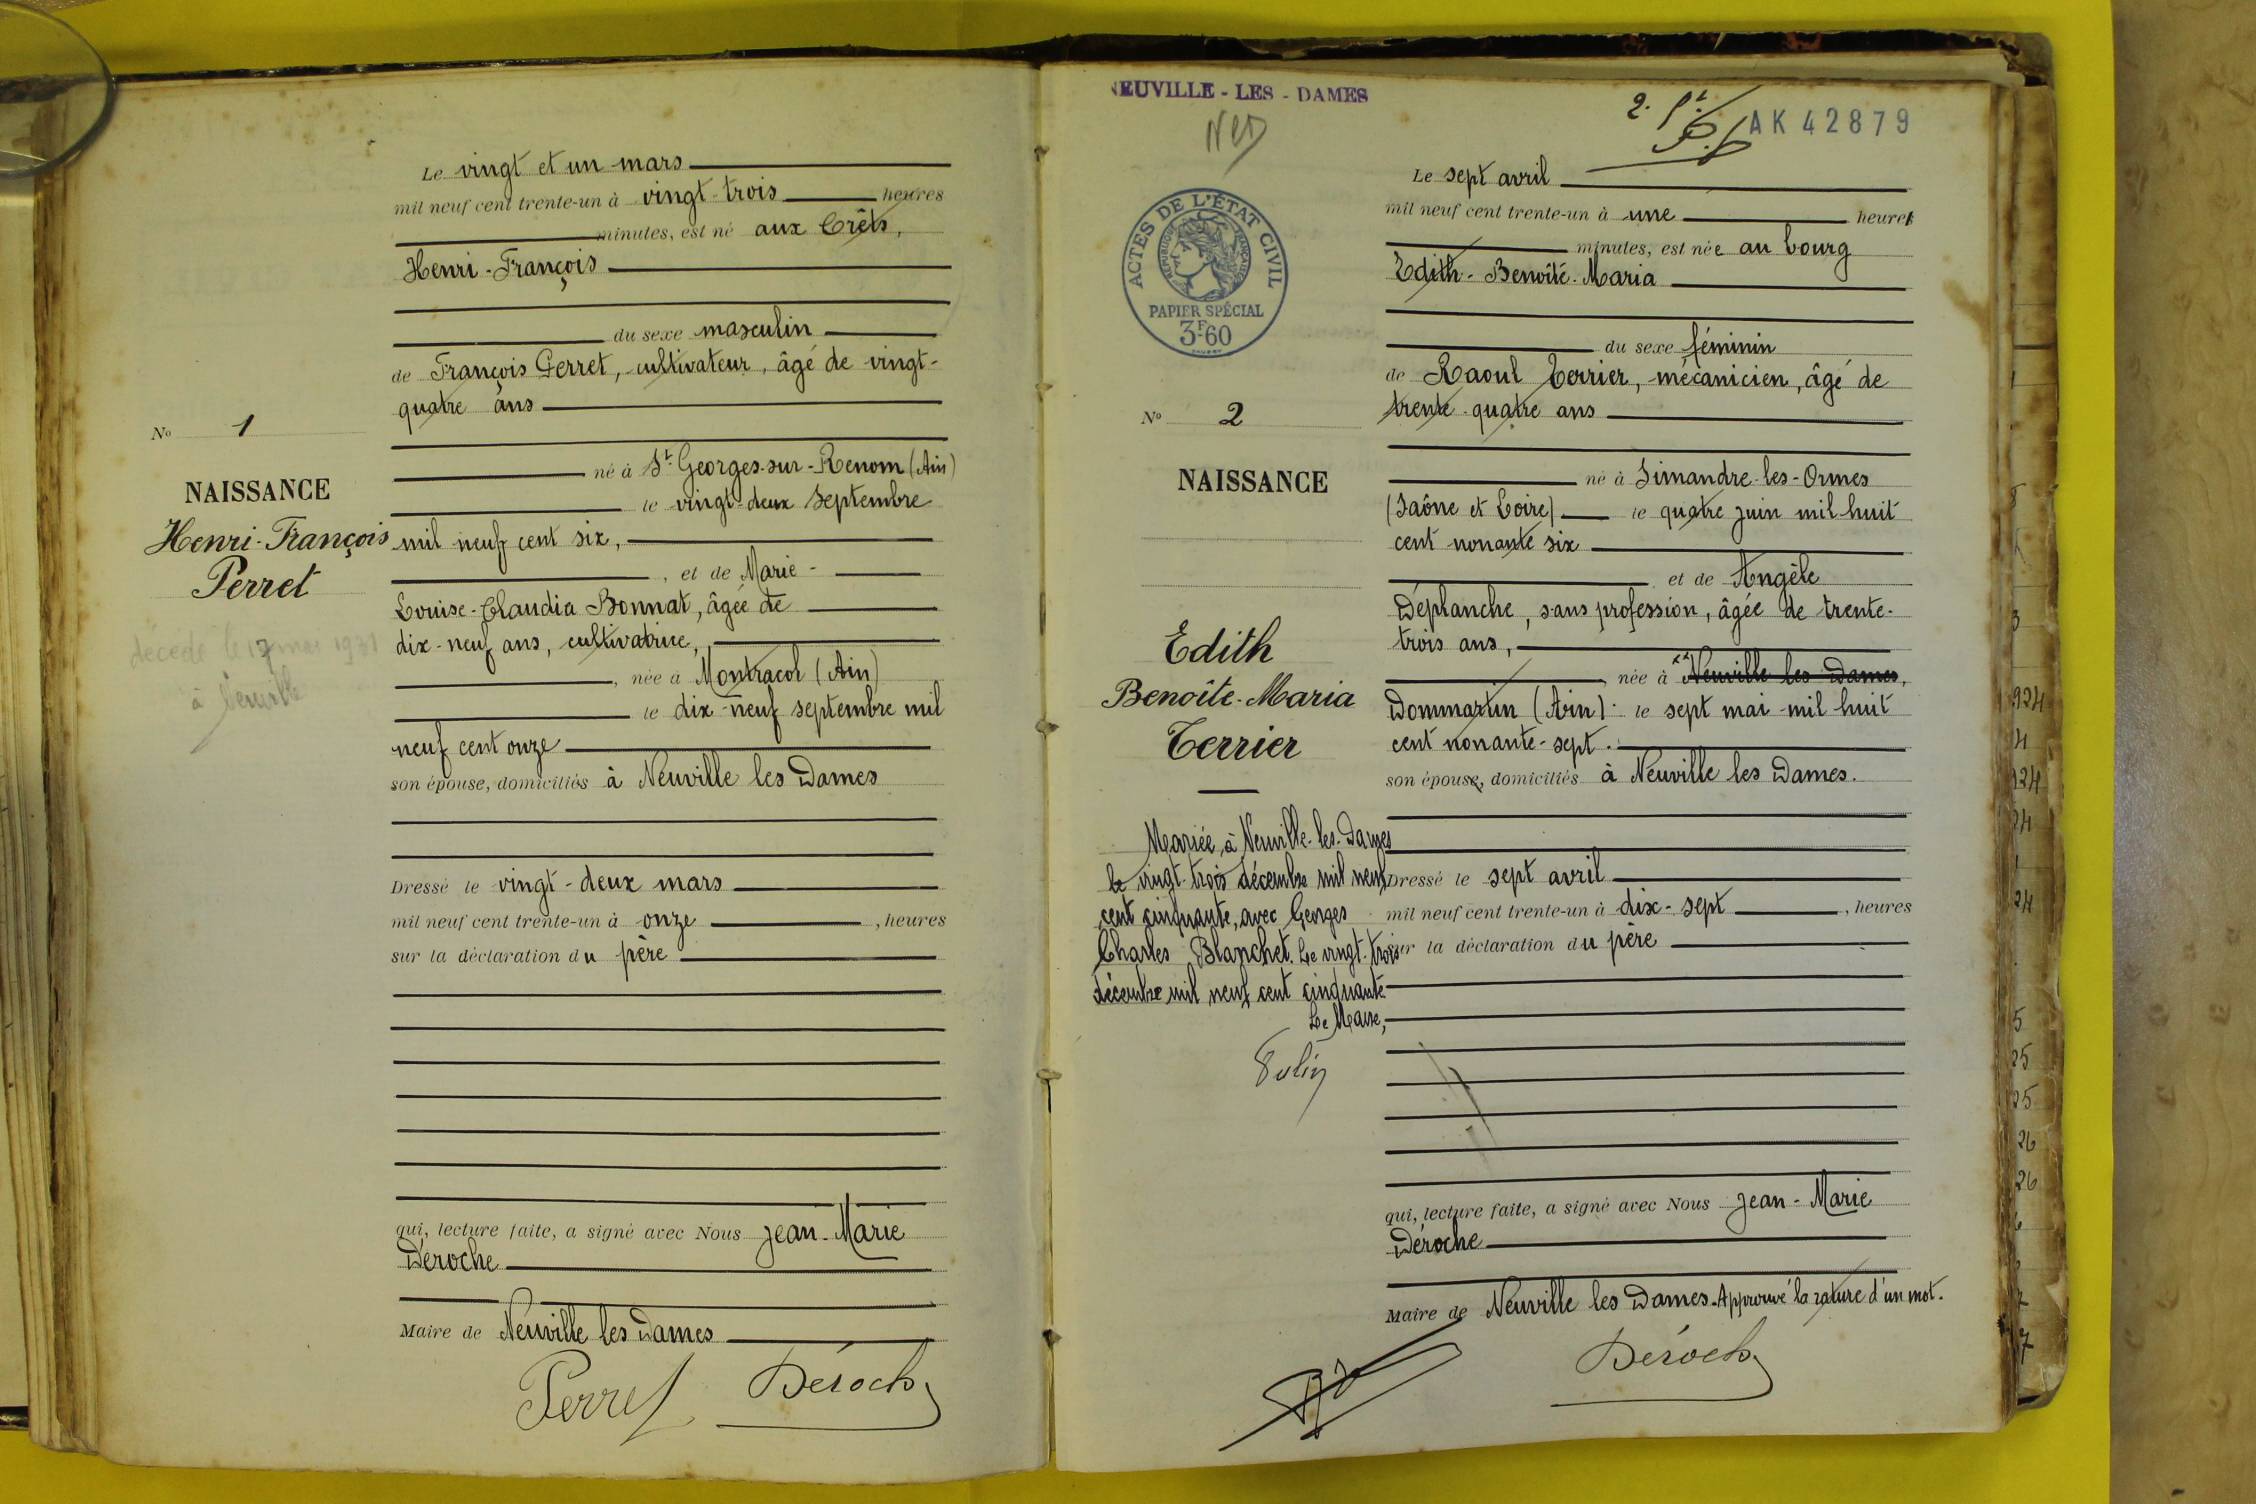 Le vingt et un mars
mil neuf cent trente-un à vingt-trois heures
minutes, est né aux Crêts,
Henri-François
du sexe masculin
de François Perret, cultivateur, âgé de vingt-
quatre ans
né à St Georges-sur-Renom (Ain)
le vingt-deux septembre
mil neuf cent six,
, et de Marie-
Louise-Claudia Bonnat, âgée de
dix-neuf ans, cultivatrice,
, née à Montracol (Ain)
le dix-neuf septembre mil
neuf cent onze
son épouse, domiciliés à Neuville les Dames
Dressé le vingt-deux mars
mil neuf cent trente-un à onze , heures
sur la déclaration du père
qui, lecture faite, a signé avec Nous Jean-Marie
Déroche
Maire de Neuville les Dames
Perret Déroche
No 1
NAISSANCE
Henri-François
Perret
décédé le 17 mai 1931
à Neuville
NEUVILLE-LES-DAMES
NLD
AK 42879
ACTES DE L'ÉTAT CIVIL
RÉPUBLIQUE FRANÇAISE
PAPIER SPÉCIAL
3F60
No 2
NAISSANCE
Edith
Benoîte-Maria
Terrier
Mariée à Neuville-les-Dames
le vingt-trois décembre mil neuf
cent cinquante, avec Georges
Charles Blanchet. Le vingt-trois
décembre mil neuf cent cinquante
Le Maire,
Le sept avril
mil neuf cent trente-un à une heure
minutes, est née au bourg
Edith-Benoîte-Maria
du sexe féminin
de Raoul Terrier, mécanicien, âgé de
trente-quatre ans
né à Simandre-les-Ormes
(Saône et Loire) le quatre juin mil huit
cent nonante six
et de Angèle
Déplanche, sans profession, âgée de trente-
trois ans,
, née à Neuville les Dames,
Dommartin (Ain) le sept mai mil huit
cent nonante-sept.
son épouse, domiciliés à Neuville les Dames.
Dressé le sept avril
mil neuf cent trente-un à dix-sept , heures
sur la déclaration du père
qui, lecture faite, a signé avec Nous Jean-Marie
Déroche
Maire de Neuville les Dames. Approuvé la rature d'un mot.
Déroche